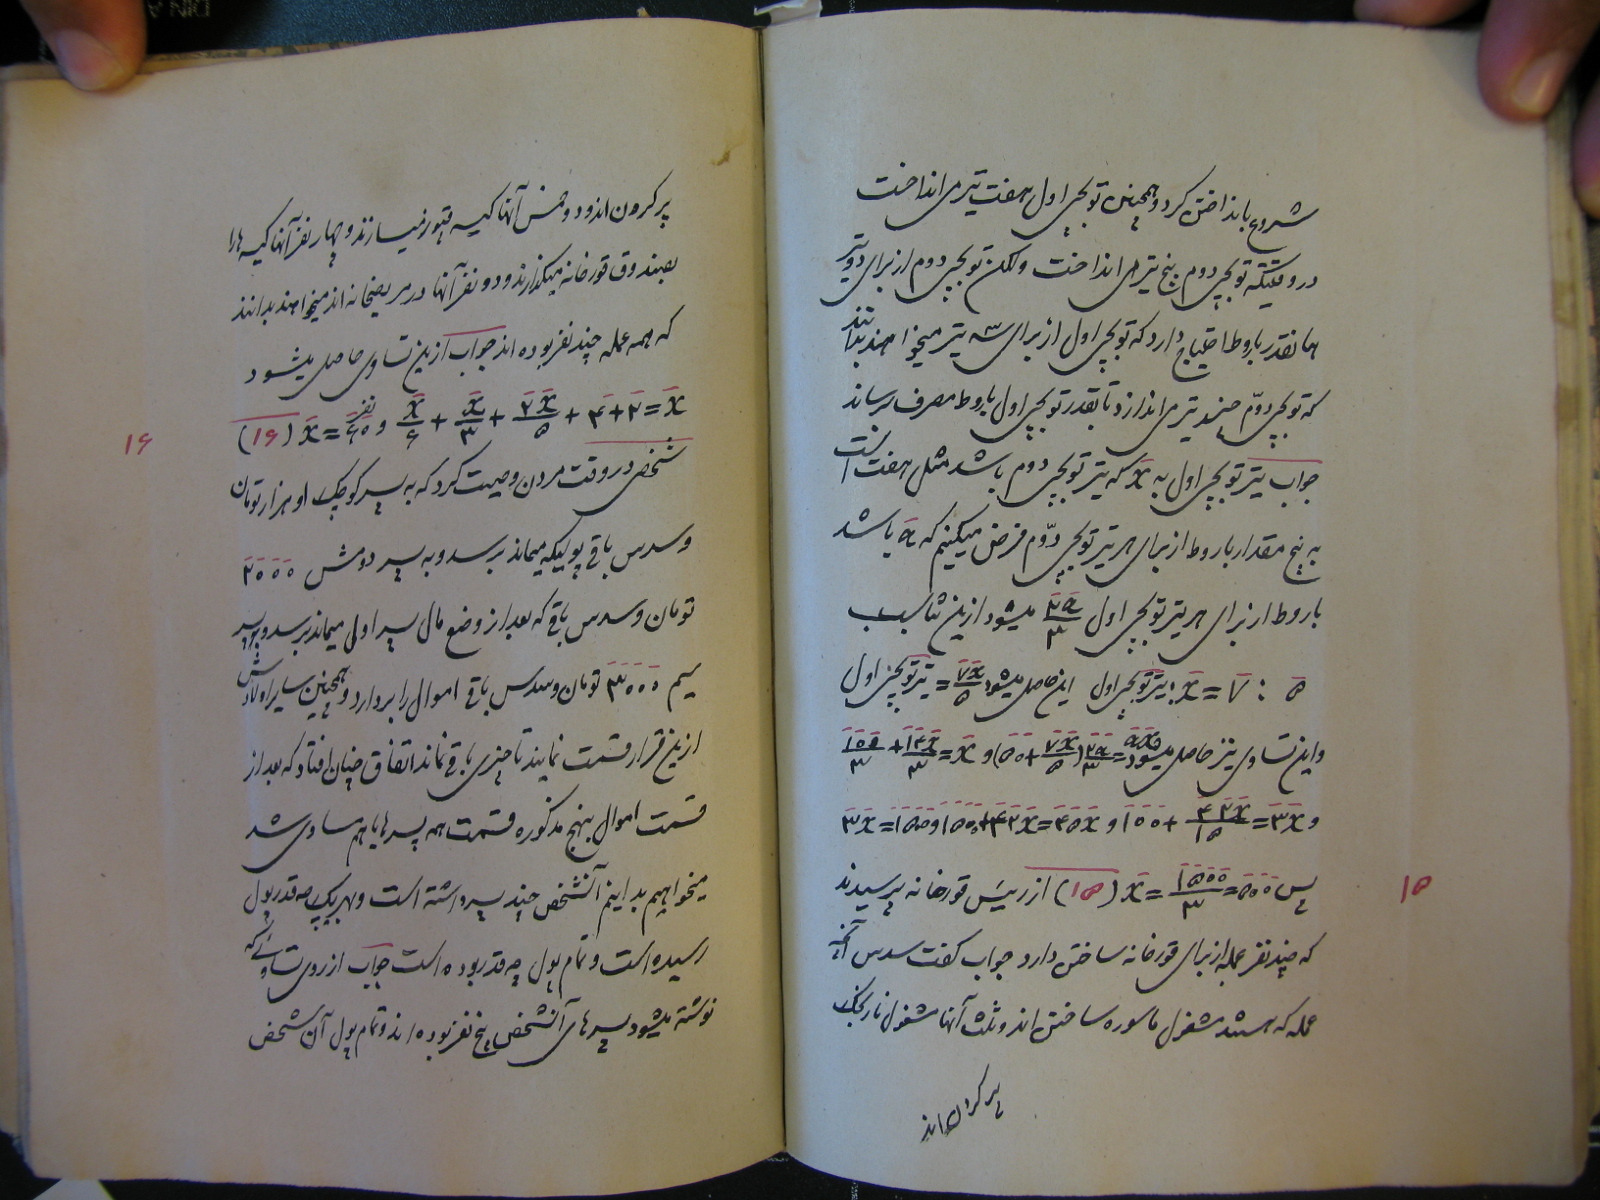 شروع بانداختن کرد و همچنین توپچی اول هفت تیر می انداخت
در وقتیکه توپچی دوم پنج تیر می انداخت ولکن توپچی دوم از برای دو تیر
همانقدر باروط احتیاج دارد که توپچی اول از برای سه تیر میخواهند بدانند
که توپچی دوّم چند تیر می اندازد تا بقدر توپچی اول باروط مصرف برساند
جواب تیر توپچی اول به x که تیر توپچی دوم باشد مثل هفت است
به پنج مقدار باروط از برای هر تیر توپچی دوّم فرض میکنیم که a باشد
باروط از برای هر تیر توپچی اول ۲a/۳ میشود از این تناسب
۵ : ۷ = x : تیر توپچی اول این حاصل میشود ۷x/۵ = تیر توپچی اول
و این تساوی نیز حاصل میشود
و ۳x = ۴۲x/۱۵ + ۱۰۰ و ۴۵x = ۴۲x + ۱۵۰۰ و ۳x = ۱۵۰۰
پس x = ۱۵۰۰/۳ = ۵۰۰ (۱۵) از رییس قورخانه پرسیدند
۱۵
که چند نفر عمله از برای قورخانه ساختن دارد جواب گفت سدس آنچه
عمله که هستند مشغول ماسوره ساختن اند و ثلث آنها مشغول نارنجک
پر کردن اند
پر کردن اند و دو خمس آنها کیسه میسازند و چهار نفر آنها کیسه ها را
بصندوق قورخانه میگذارند و دو نفر آنها در مریضخانه اند میخواهند بدانند
که همه عمله چند نفر بوده اند جواب از این تساوی حاصل میشود
x/۶ + x/۳ + ۲x/۵ + ۴ + ۲ = x و x = ۶۰ نفر (۱۶)
۱۶
شخصی در وقت مردن وصیت کرد که به پسر کوچک او هزار تومان
و سدس باقی پولیکه میماند برسد و به پسر دومش ۲۰۰۰
تومان و سدس باقی که بعد از وضع مال پسر اولی میماند برسد و به پسر
سیم ۳۰۰۰ تومان و سدس باقی اموال را بردارد و همچنین سایر اولادش
از این قرار قسمت نمایند تا چیزی باقی نماند اتفاق چنان افتاد که بعد از
قسمت اموال بنهج مذکوره قسمت همه پسرها با هم مساوی شد
میخواهیم بدانیم آنشخص چند پسر داشته است و بهر یک چه قدر پول
رسیده است و تمام پول چه قدر بوده است جواب از روی تساوئی که
نوشته میشود پسرهای آنشخص پنج نفر بوده اند و تمام پول آن شخص